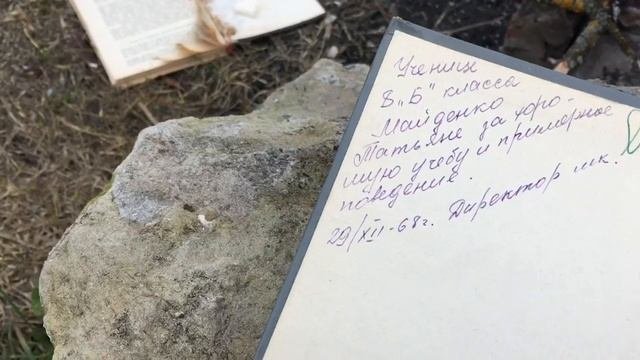 Ученице
8 „Б" класса
Майденко
Татьяне за хоро-
шую учебу и примерное
поведение.
29/XII-68г. Директор шк.